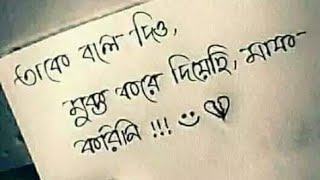 তাকে বলে দিও,
মুক্ত করে দিয়েছি, মাফ
করিনি !!! 🙂💔